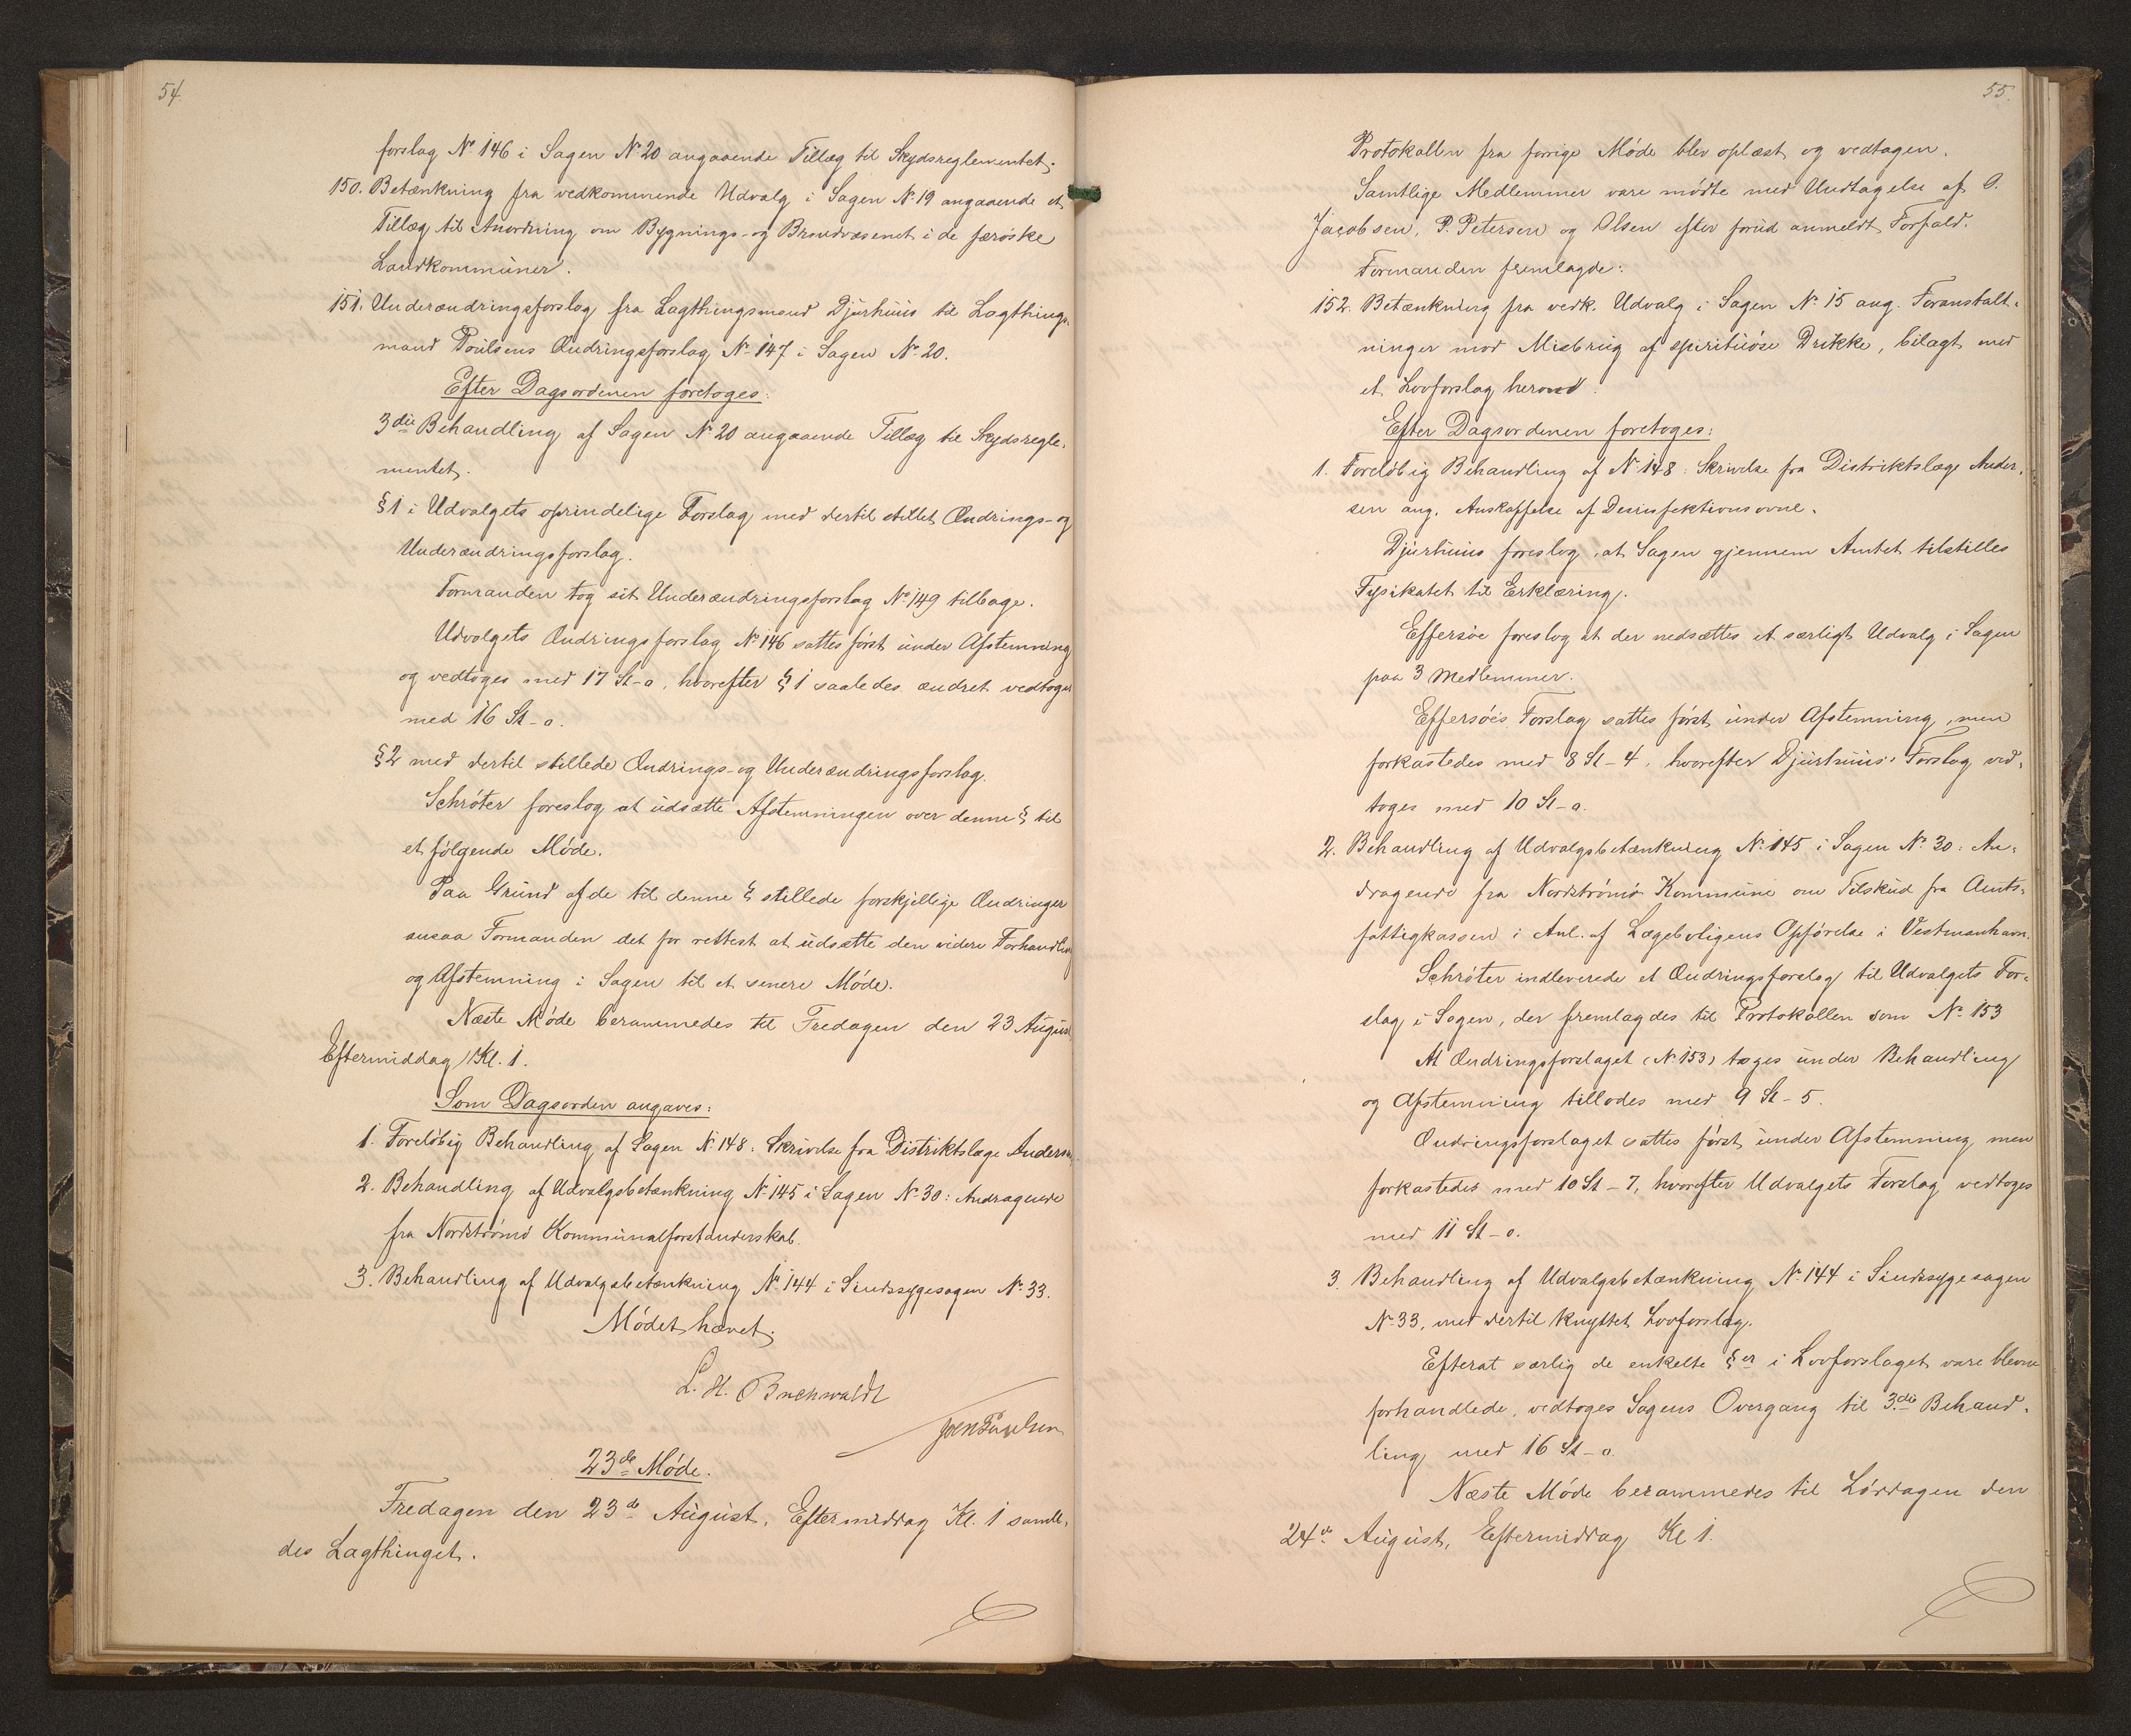 54.
forslag No 146 i Sagen No 20 angaaende Tillæg til Skydsreglementet.
150. Betænkning fra vedkommende Udvalg i Sagen No 19 angaaende et
Tillæg til Anordning om Bygnings- og Brandvæsenet i de færøske
Landkommuner.
151. Underændringsforslag fra Lagthingsmand Djurhuus til Lagthings-
mand Poulsens Ændringsforslag No 147 i Sagen No 20.
Efter Dagsordenen foretoges:
3die Behandling af Sagen No 20 angaaende Tillæg til Skydsregle-
mentet.
§ 1 i Udvalgets oprindelige Forslag med dertil stillet Ændrings- og
Underændringsforslag.
Formanden tog sit Underændringsforslag No 149 tilbage.
Udvalgets Ændringsforslag No 146 sattes først under Afstemning
og vedtoges med 17 St-0, hvorefter § 1 saaledes ændret vedtoges
med 16 St-0.
§ 2 med dertil stillede Ændrings- og Underændringsforslag.
Schrøter foreslog at udsætte Afstemningen over denne § til
et følgende Møde.
Paa Grund af de til denne § stillede forskjellige Ændringer
ansaa Formanden det for rettest at udsætte den videre Forhandling
og Afstemning i Sagen til et senere Møde.
Næste Møde berammedes til Fredagen den 23 August
Eftermiddag Kl. 1.
Som Dagsorden angaves:
1. Foreløbig Behandling af Sagen No 148: Skrivelse fra Distriktslæge Andersen
2. Behandling af Udvalgsbetænkning No 145 i Sagen No 30: Andragende
fra Nordstrømø Kommunalforstanderskab.
3. Behandling af Udvalgsbetænkning No 144 i Sindssygesagen No 33.
Mødet hævet.
L. H. Buchwaldt
23de Møde.
Fredagen den 23de August, Eftermiddag Kl. 1 samle-
des Lagthinget.
55.
Protokollen fra forrige Møde blev oplæst og vedtagen.
Samtlige Medlemmer vare mødte med Undtagelse af O.
Jacobsen, P. Petersen og Olsen efter forud anmeldt Forfald.
Formanden fremlagde:
152. Betænkning fra vedk. Udvalg i Sagen No 15 ang. Foranstalt-
ninger mod Misbrug af spirituøse Drikke, bilagt med
et Lovforslag herom.
Efter Dagsordenen foretoges:
1. Foreløbig Behandling af No 148: Skrivelse fra Distriktslæge Ander-
sen ang. Anskaffelse af Desinfektionsovne.
Djurhuus foreslog, at Sagen gjennem Amtet tilstilles
Fysikatet til Erklæring.
Effersøe foreslog at der nedsættes et særligt Udvalg i Sagen
paa 3 Medlemmer.
Effersøes Forslag sattes først under Afstemning, men
forkastedes med 8 St-4, hvorefter Djurhuus' Forslag ved-
toges med 10 St-0.
2. Behandling af Udvalgsbetænkning No 145 i Sagen No 30: An-
dragende fra Nordstrømø Kommune om Tilskud fra Amts-
fattigkassen i Anl. af Lægeboligens Opførelse i Vestmanhavn.
Schrøter indleverede et Ændringsforslag til Udvalgets For-
slag i Sagen, der fremlagdes til Protokollen som No 153
At Ændringsforslaget (No 153) toges under Behandling
og Afstemning tillodes med 9 St-5.
Ændringsforslaget sattes først under Afstemning men
forkastedes med 10 St-7, hvorefter Udvalgets Forslag vedtoges
med 11 St-0.
3. Behandling af Udvalgsbetænkning No 144 i Sindssygesagen
No 33, med dertil knyttet Lovforslag.
Efterat særlig de enkelte §er i Lovforslaget vare blevne
forhandlede, vedtoges Sagens Overgang til 3die Behand-
ling med 16 St-0.
Næste Møde berammedes til Lørdagen den
24de August, Eftermiddag Kl 1.